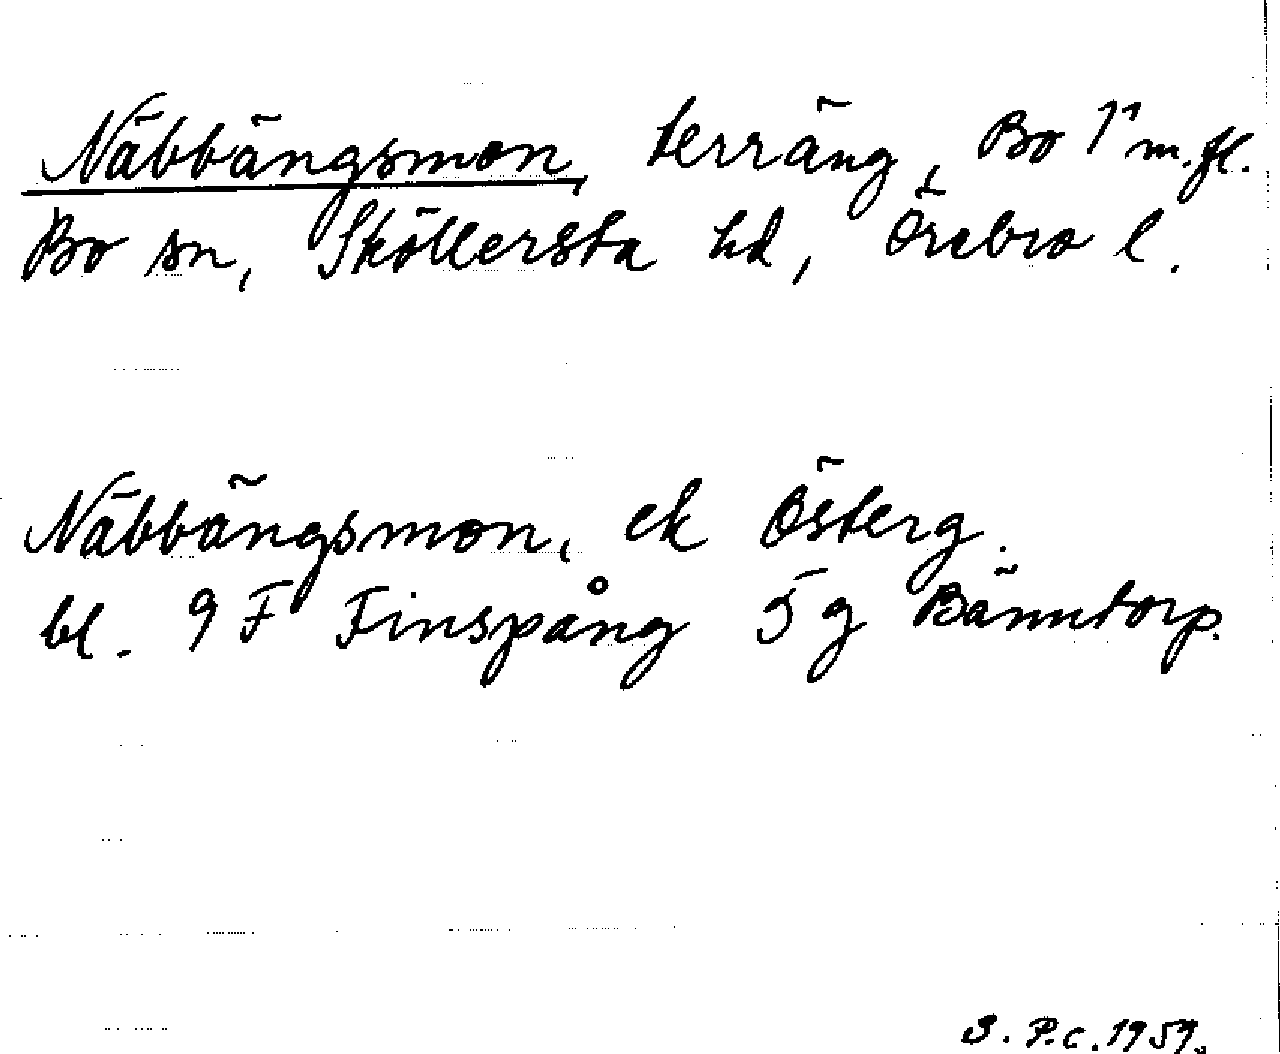 Näbbängsmon, terräng, Bo 1¹¹ m.fl.
Bo sn, Sköllersta hd, Örebro l.
Näbbängsmon, ek Österg.
bl. 9 F Finspång 5 g Bänntorp.
S. P.c. 1959.